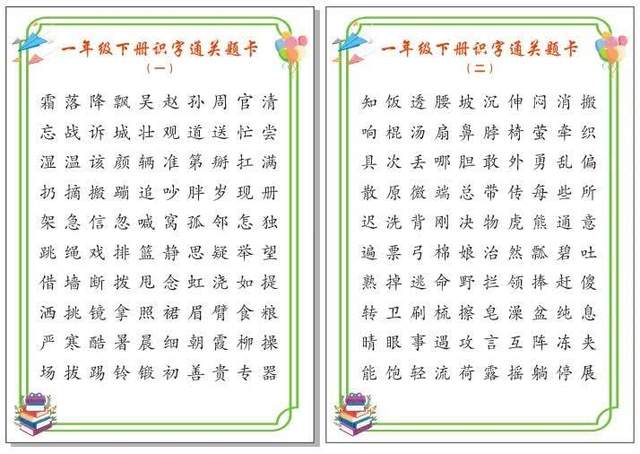 一年级下册识字通关题卡
(一)
霜落降飘吴赵孙周官清
忘战诉城壮观道送忙尝
湿温该颜辆准第掰扛满
扔摘搬蹦追吵胖岁现册
架急信忽喊窝孤邻怎独
跳绳戏排篮静思疑举望
借墙断拨甩念虹浇如提
洒挑镜拿照裙眉臂食粮
严寒酷暑晨细朝霞柳操
场拔踢铃锻初善贵专器
一年级下册识字通关题卡
(二)
知饭透腰坡沉伸闷消搬
响棍汤扇鼻脖椅萤牵织
具次丢哪胆敢外勇乱偏
散原微端总带传每些所
迟洗背刚决物虎熊通意
遍票弓棉娘治然瓢碧吐
熟掉逃命野拦领捧赶傻
转卫刷梳擦皂澡盆纯息
晴眼事遇攻言互阵冻夹
能饱轻流荷露摇躺停展